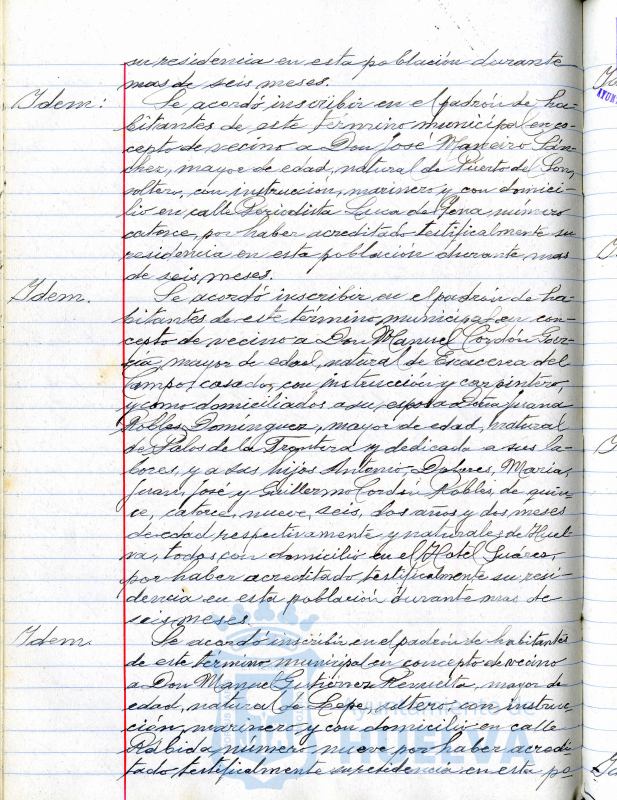 su residencia en esta población durante
mas de seis meses.
Idem:
Se acordó inscribir en el padrón de ha-
bitantes de este término municipal en co-
cepto de vecino a Don José Maneiro Sán-
chez, mayor de edad, natural de Puerto del Son,
soltero, con instrucción, marinero y con domici-
lio en calle Periodista Luca de Tena, número
catorce, por haber acreditado testificalmente su
residencia en esta población durante mas
de seis meses.
Idem.
Se acordó inscribir en el padrón de ha-
bitantes de este término municipal en con-
cepto de vecino a Don Manuel Cordón Gar-
cía, mayor de edad, natural de Escacena del
Campo, casado, con instrucción y carpintero,
y como domiciliados a su esposa Doña Juana
Robles Dominguez, mayor de edad, natural
de Palos de la Frontera y dedicada a sus la-
bores, y a sus hijos Antonio, Dolores, Maria,
Juan, José y Guillermo Cordón Robles, de quin-
ce, catorce, nueve, seis, dos años y dos meses
de edad respectivamente y naturales de Huel-
va, todos con domicilio en el Hotel Suárez,
por haber acreditado testificalmente su resi-
dencia en esta población durante mas de
seis meses.
Idem.
Se acordó inscribir en el padrón de habitantes
de este término municipal en concepto de vecino
a Don Manuel Gutiérrez Renuelta, mayor de
edad, natural de Lepe, soltero, con instruc-
ción, marinero y con domicilio en calle
Rábida número nueve por haber acredi-
tado testificalmente su residencia en esta po
HUELVA